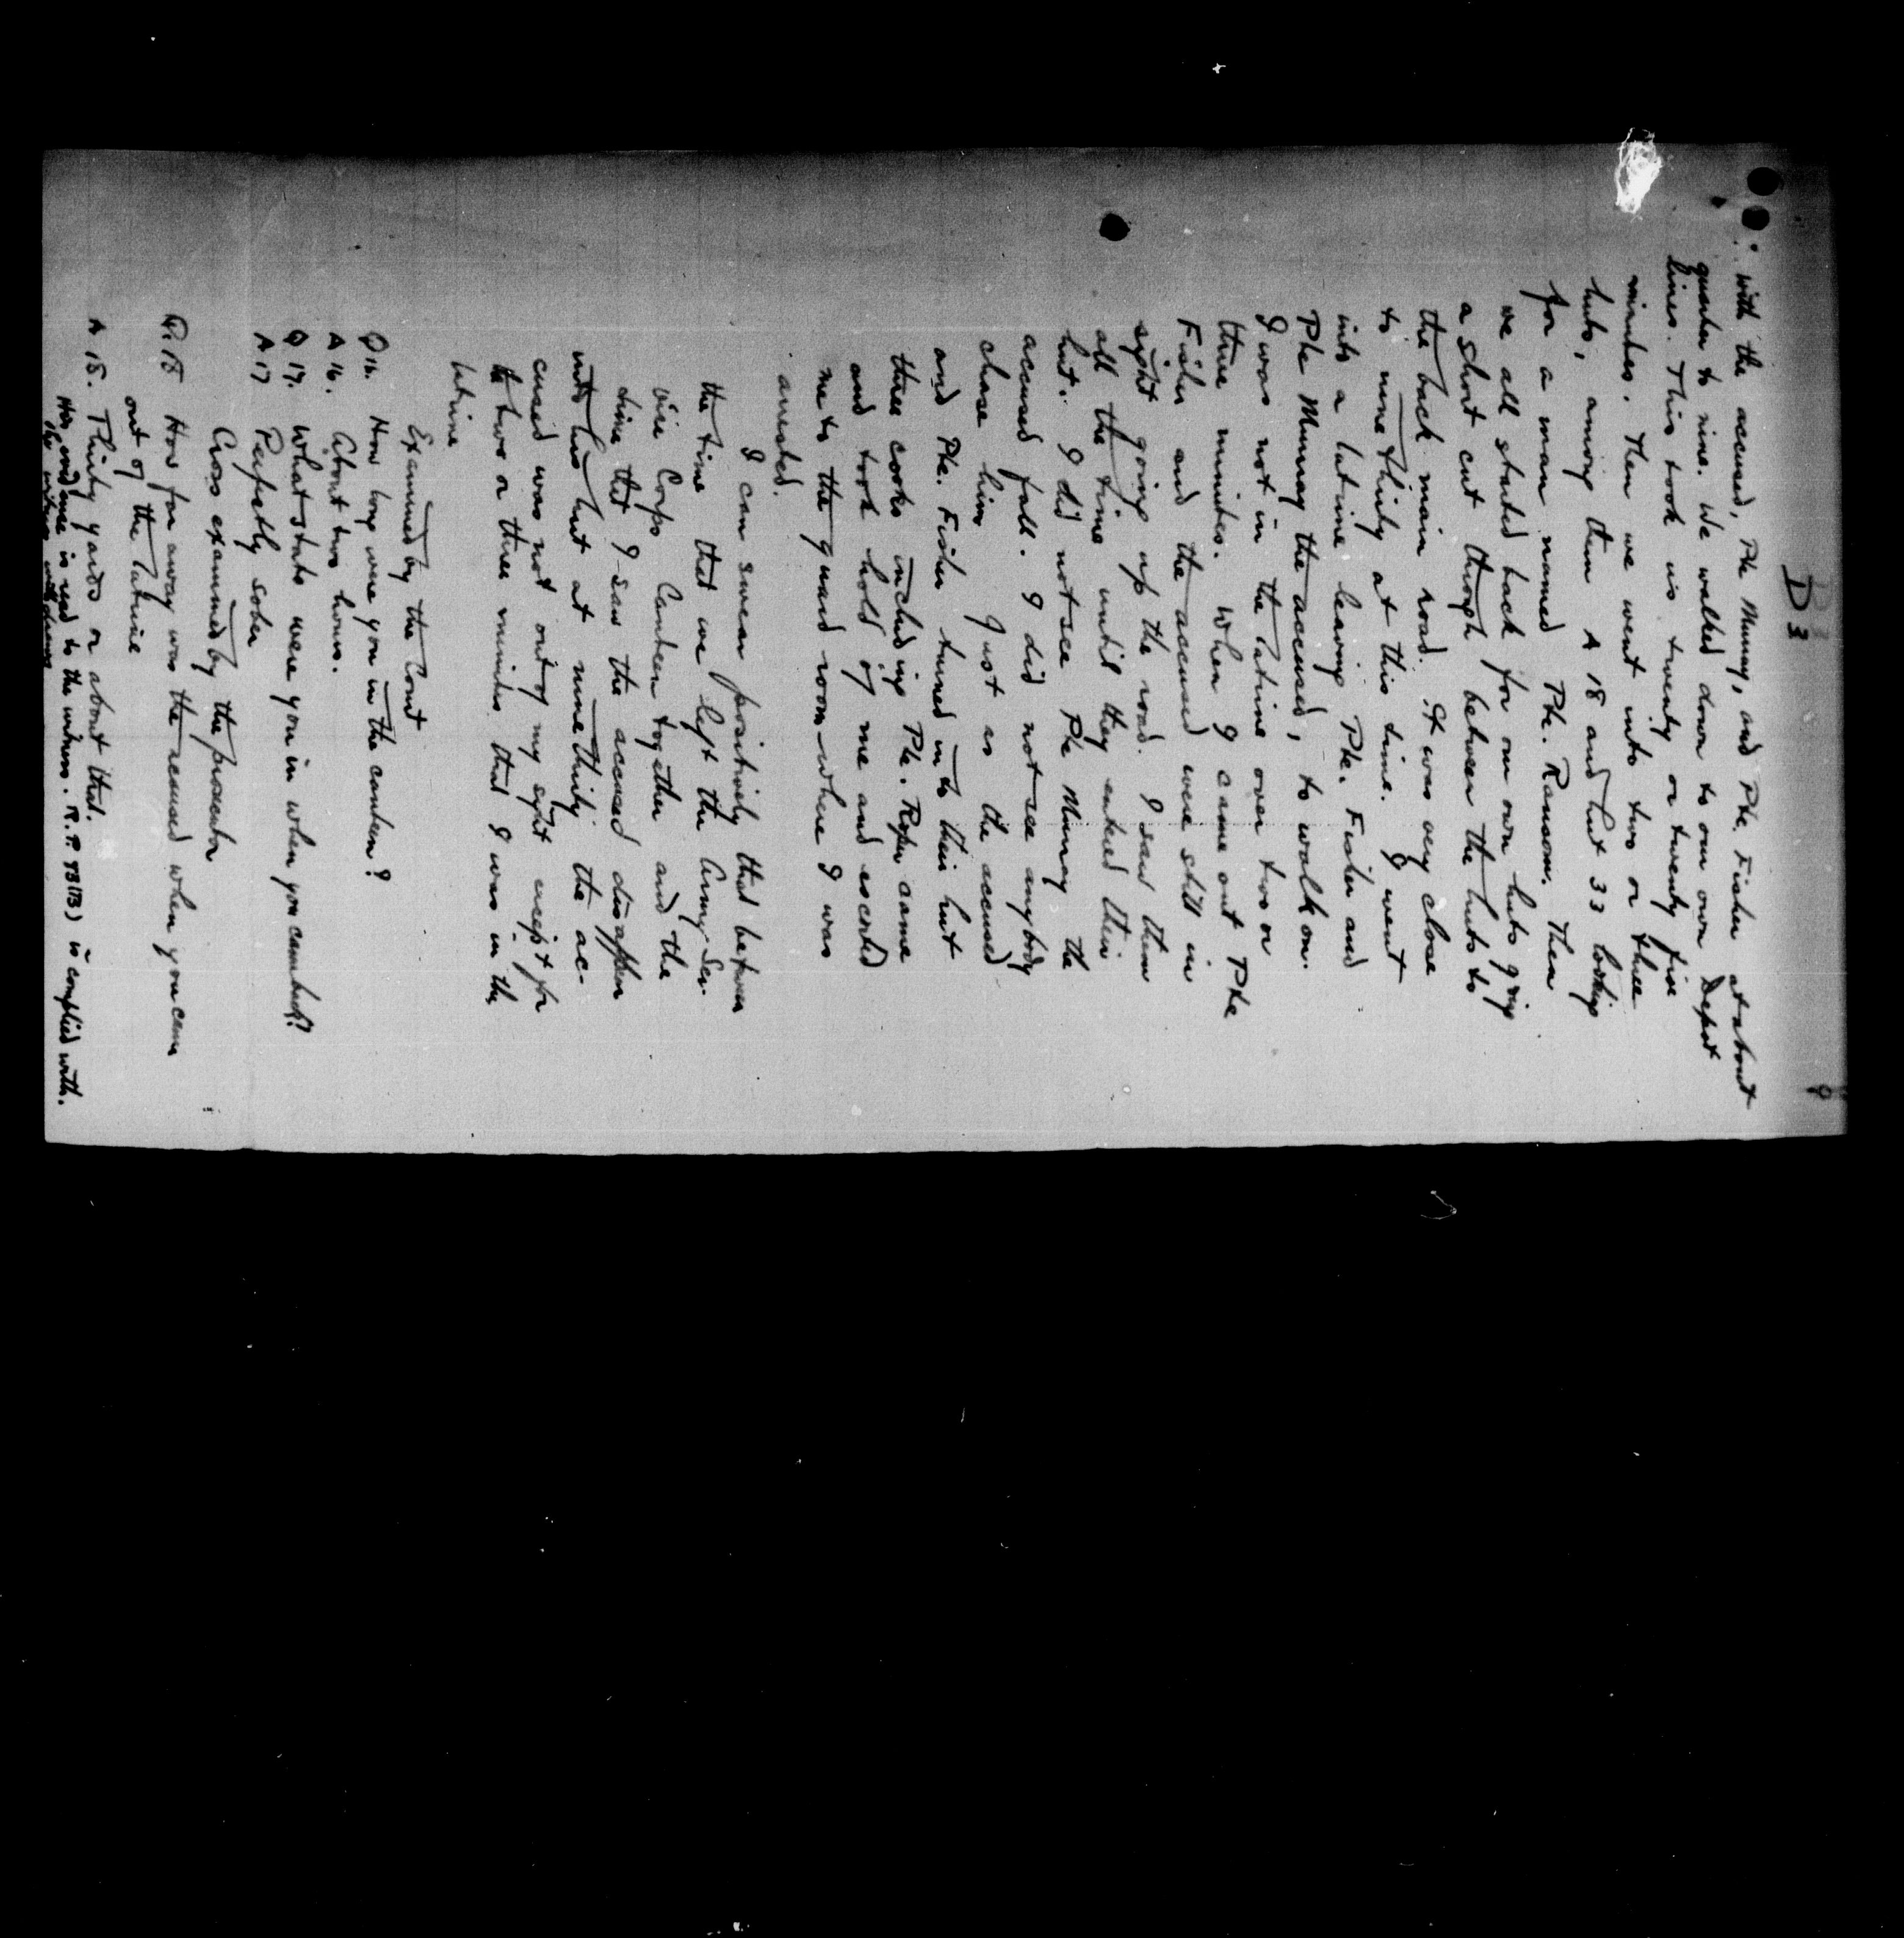 D 3
9
with the accused, Pte Murray, and Pte. Fisher at about
quarter to nine. We walked down to our own Depot
lines. This took us twenty or twenty five
minutes. Then we went into two or three
huts, among them A 18 and hut 33 looking
for a man named Pte. Ransom. Then
we all started back for our own huts going
a short cut through between the huts to
the back main road. It was very close
to nine thirty at this time. I went
into a latrine leaving Pte. Fisher and
Pte Murray the accused, to walk on.
I was not in the latrine over two or
three minutes. When I came out Pte
Fisher and the accused were still in
sight going up the road. I saw them
all the time until they entered their
hut. I did not see Pte Murray the
accused fall. I did not see anybody
chase him. Just as the accused
and Pte. Fisher turned into their hut
three cooks including Pte. came
and took hold of me and escorted
me to the guard room where I was
arrested.
I can swear positively that between
the time that we left the Army Ser-
vice Corps Canteen together and the
time that I saw the accused disappear
into his hut at nine thirty the ac-
cused was not out of my sight except for
two or three minutes that I was in the
latrine
Examined by the Court
Q 16. How long were you in the canteen?
A 16. About two hours.
Q 17. What state were you in when you came back?
A 17 Perfectly sober
Cross examined by the prosecutor
Q. 18 How far away was the accused when you came
out of the latrine
A 18. Thirty yards or about that.
His evidence is read to the witness. R.P. 83(B) is complied with.
The witness withdraws